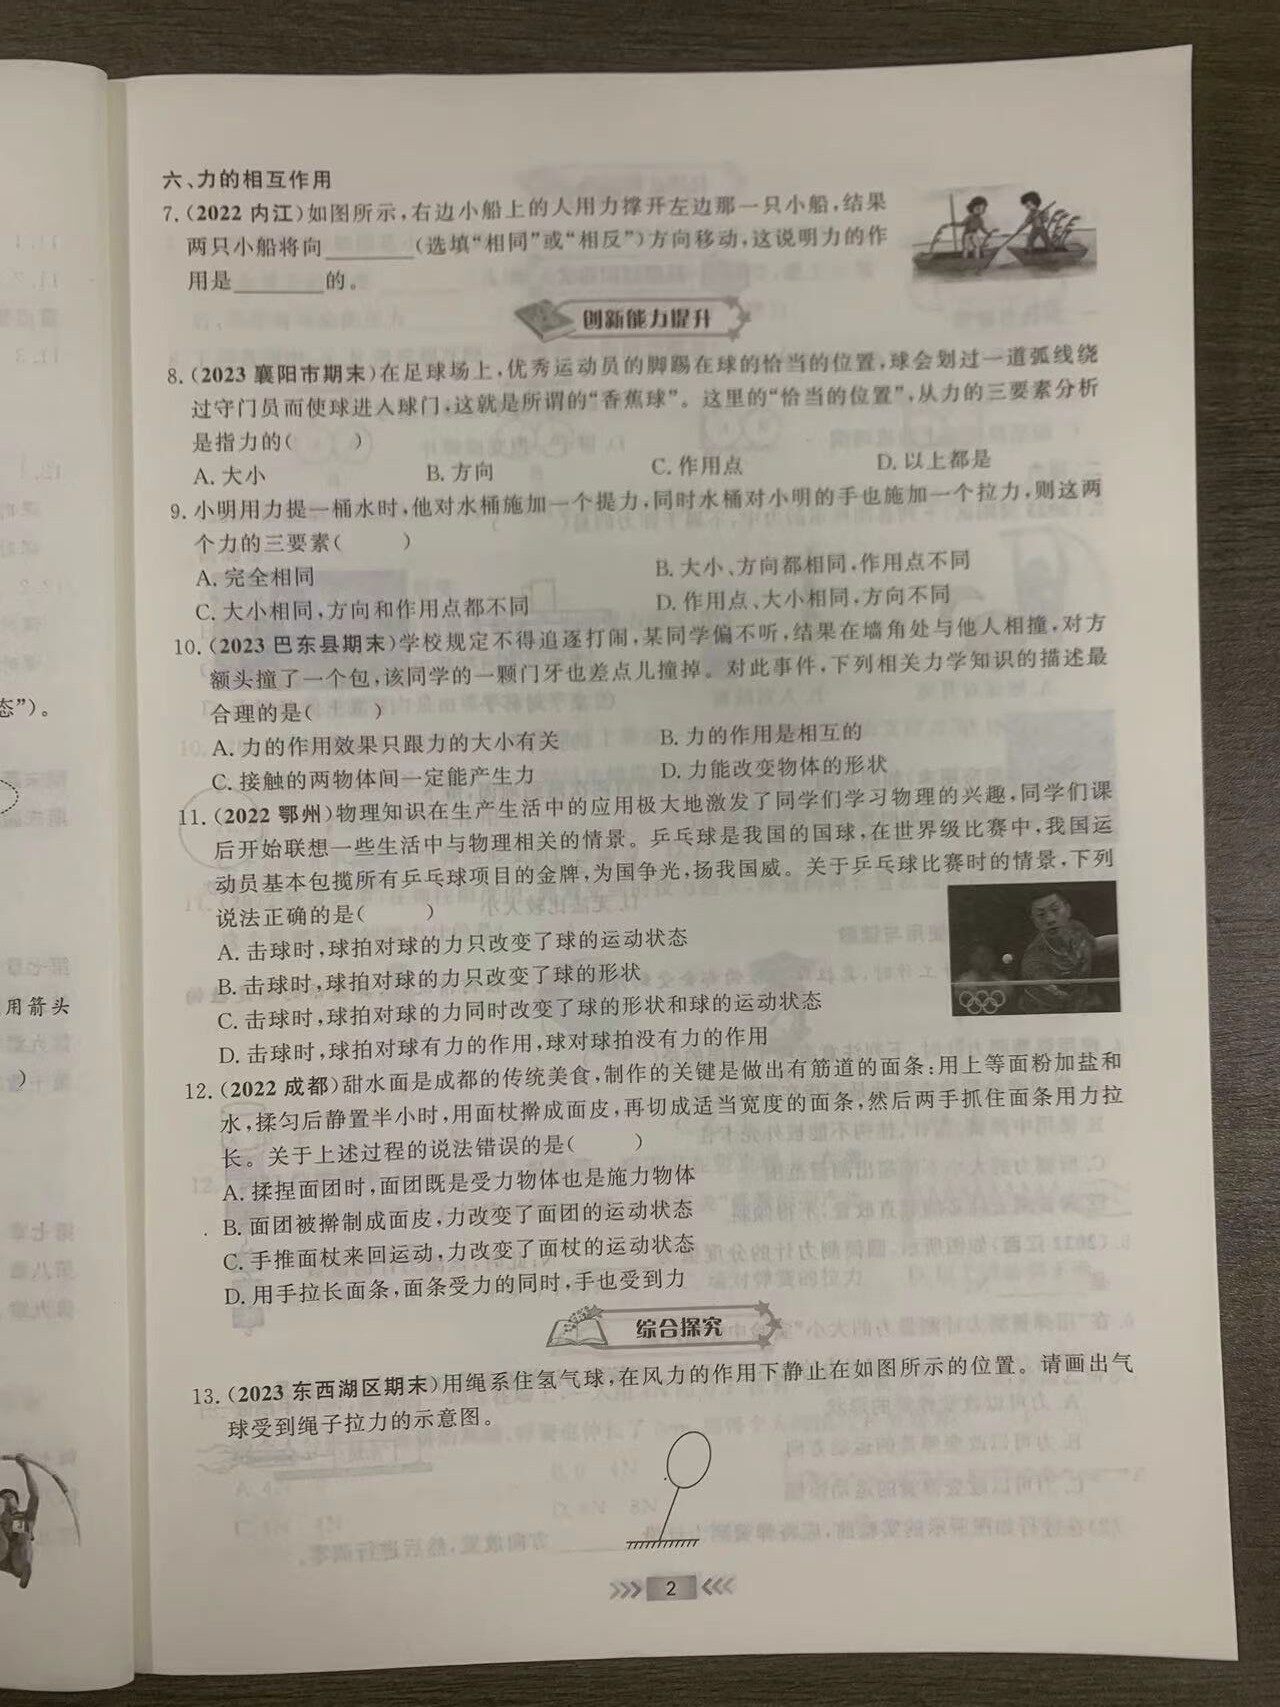 六、力的相互作用
7.(2022 内江)如图所示,右边小船上的人用力撑开左边那一只小船,结果
两只小船将向________(选填“相同”或“相反”)方向移动,这说明力的作
用是________的。
创新能力提升
8.(2023 襄阳市期末)在足球场上,优秀运动员的脚踢在球的恰当的位置,球会划过一道弧线绕
过守门员而使球进入球门,这就是所谓的“香蕉球”。这里的“恰当的位置”,从力的三要素分析
是指力的(    )
A. 大小 B. 方向 C. 作用点 D. 以上都是
9. 小明用力提一桶水时,他对水桶施加一个提力,同时水桶对小明的手也施加一个拉力,则这两
个力的三要素(    )
A. 完全相同 B. 大小、方向都相同,作用点不同
C. 大小相同,方向和作用点都不同 D. 作用点、大小相同,方向不同
10.(2023 巴东县期末)学校规定不得追逐打闹,某同学偏不听,结果在墙角处与他人相撞,对方
额头撞了一个包,该同学的一颗门牙也差点儿撞掉。对此事件,下列相关力学知识的描述最
合理的是(    )
A. 力的作用效果只跟力的大小有关 B. 力的作用是相互的
C. 接触的两物体间一定能产生力 D. 力能改变物体的形状
11.(2022 鄂州)物理知识在生产生活中的应用极大地激发了同学们学习物理的兴趣,同学们课
后开始联想一些生活中与物理相关的情景。乒乓球是我国的国球,在世界级比赛中,我国运
动员基本包揽所有乒乓球项目的金牌,为国争光,扬我国威。关于乒乓球比赛时的情景,下列
说法正确的是(    )
A. 击球时,球拍对球的力只改变了球的运动状态
B. 击球时,球拍对球的力只改变了球的形状
C. 击球时,球拍对球的力同时改变了球的形状和球的运动状态
D. 击球时,球拍对球有力的作用,球对球拍没有力的作用
12.(2022 成都)甜水面是成都的传统美食,制作的关键是做出有筋道的面条:用上等面粉加盐和
水,揉匀后静置半小时,用面杖擀成面皮,再切成适当宽度的面条,然后两手抓住面条用力拉
长。关于上述过程的说法错误的是(    )
A. 揉捏面团时,面团既是受力物体也是施力物体
B. 面团被擀制成面皮,力改变了面团的运动状态
C. 手推面杖来回运动,力改变了面杖的运动状态
D. 用手拉长面条,面条受力的同时,手也受到力
综合探究
13.(2023 东西湖区期末)用绳系住氢气球,在风力的作用下静止在如图所示的位置。请画出气
球受到绳子拉力的示意图。
2
态”)。
用箭头
)